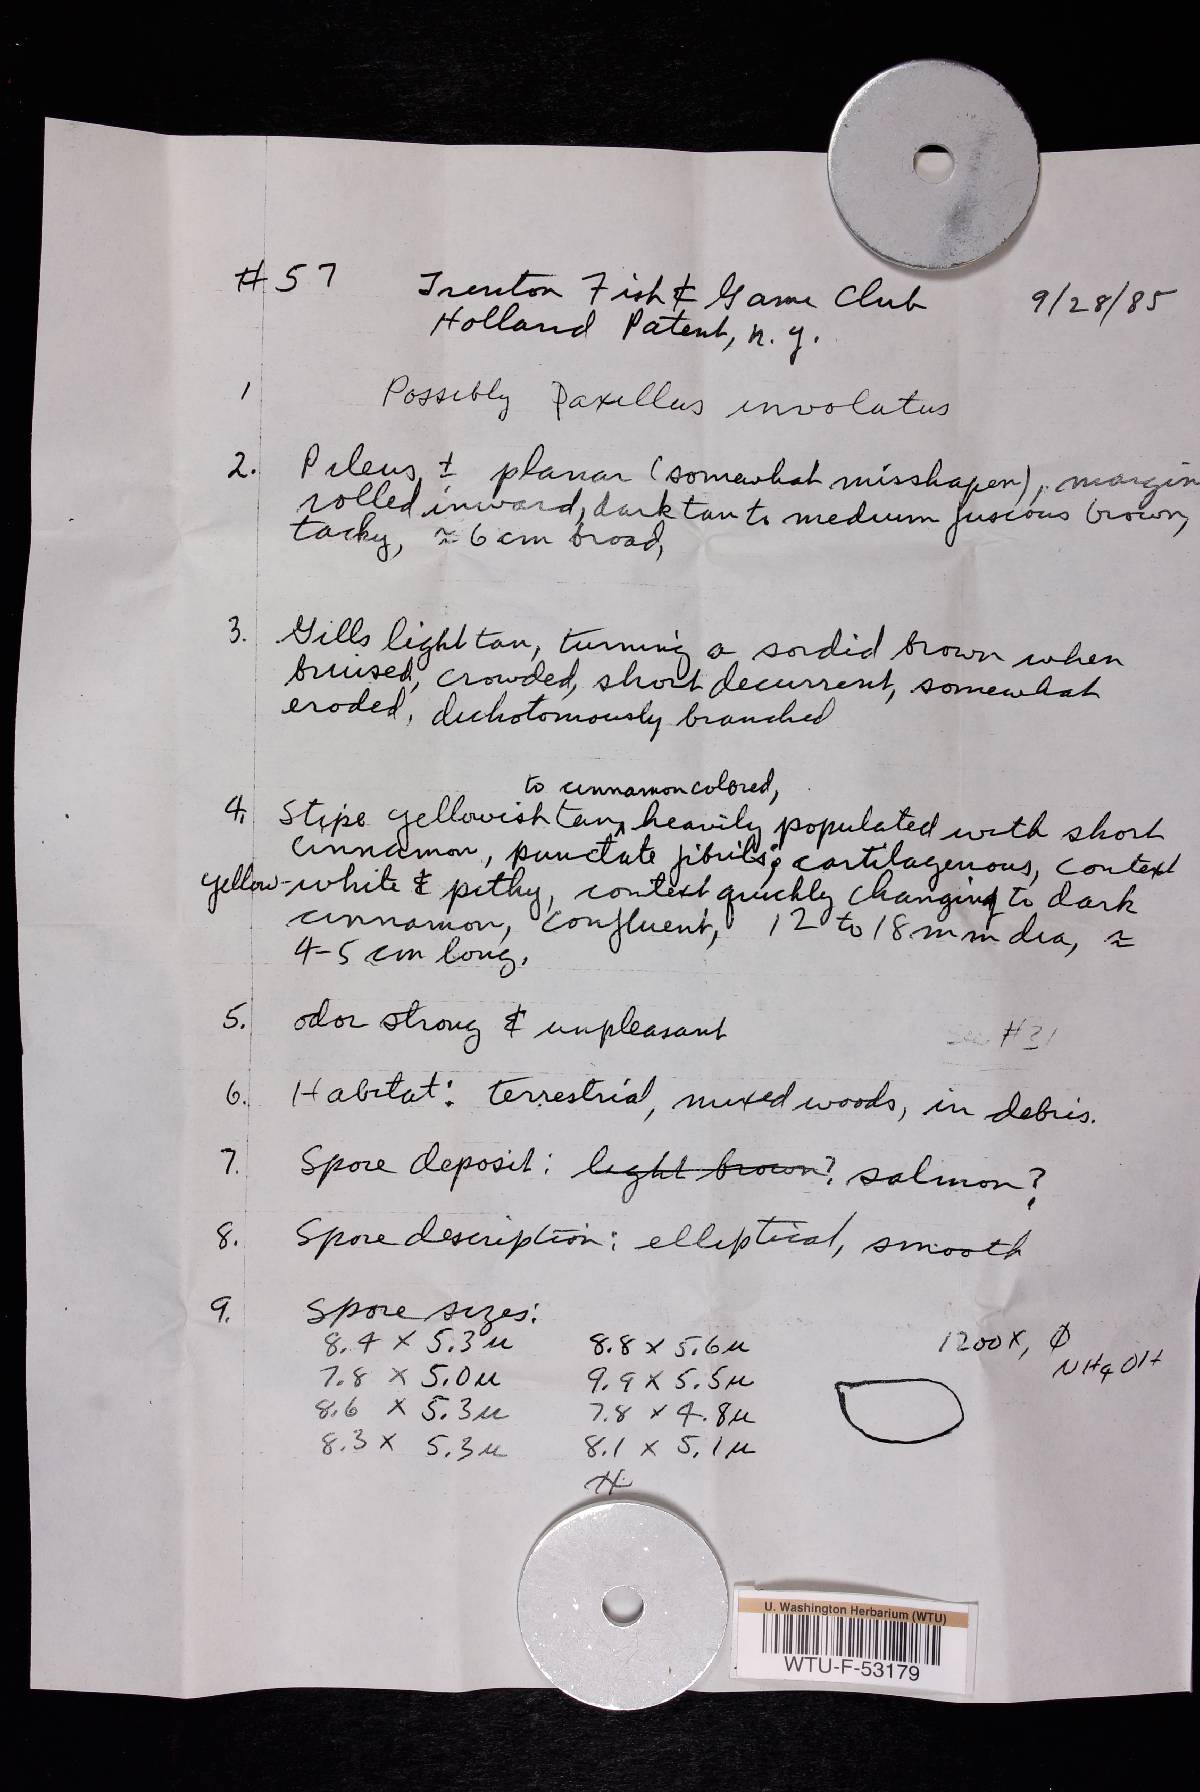 #57 Trenton Fish & Game Club 9/28/85
Holland Patent, n.y.
1 Possibly Paxillus involutus
2. Pileus ± planar (somewhat misshapen), margin
rolled inward, dark tan to medium fuscous brown,
tacky, ≈ 6 cm broad,
3. Gills light tan, turning a sordid brown when
bruised, crowded, short decurrent, somewhat
eroded, dichotomously branched
to cinnamon colored,
4. Stipe yellowish tan, ^ heavily populated with short
cinnamon, punctate fibrils; cartilagenous, context
yellow-white & pithy, context quickly changing to dark
cinnamon, confluent, 12 to 18 mm dia, ≈
4-5 cm long.
5. odor strong & unpleasant
See #31
6. Habitat: terrestrial, mixed woods, in debris.
7. Spore deposit: light brown? salmon?
8. Spore description: elliptical, smooth
9. Spore sizes:
8.4 x 5.3 u 8.8 x 5.6 u 1200X, Φ
7.8 x 5.0 u 9.9 x 5.5 u NH4OH
8.6 x 5.3 u 7.8 x 4.8 u
8.3 x 5.3 u 8.1 x 5.1 u
U. Washington Herbarium (WTU)
WTU-F-53179